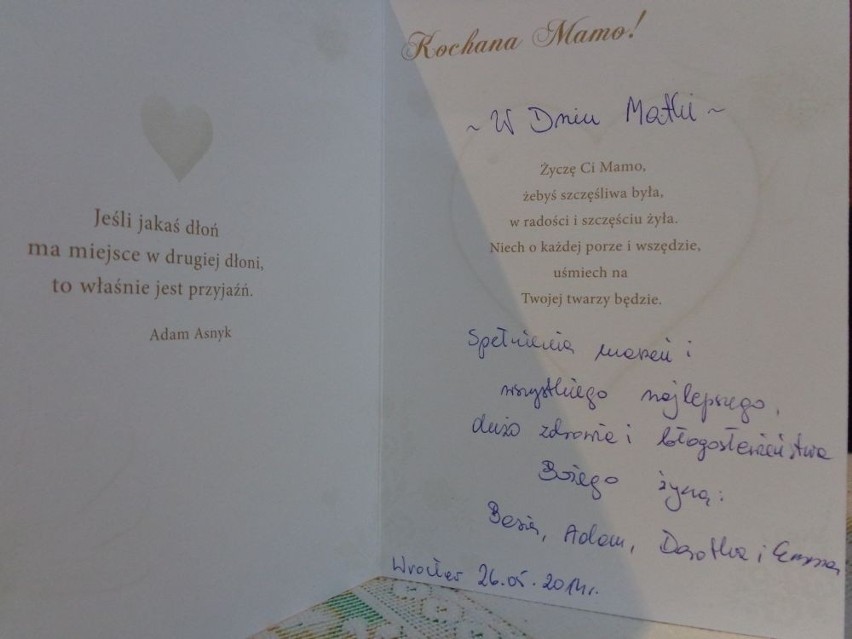 Jeśli jakaś dłoń
ma miejsce w drugiej dłoni,
to właśnie jest przyjaźń.
Adam Asnyk
Kochana Mamo!
~ W Dniu Matki ~
Życzę Ci Mamo,
żebyś szczęśliwa była,
w radości i szczęściu żyła.
Niech o każdej porze i wszędzie,
uśmiech na
Twojej twarzy będzie.
Spełnienia marzeń i
wszystkiego najlepszego,
dużo zdrowia i błogosławieństwa
Bożego życzą:
Basia, Adam, Dorotka i Emma
Wrocław 26.05.2014r.